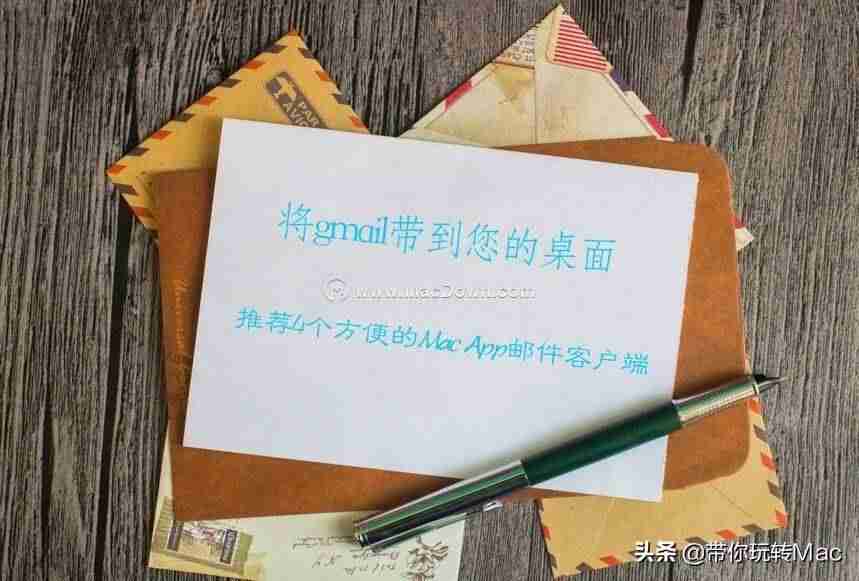 PAR AVION
将gmail带到您的桌面
www.macDown.com
推荐4个方便的Mac App邮件客户端
头条 @带你玩转Mac